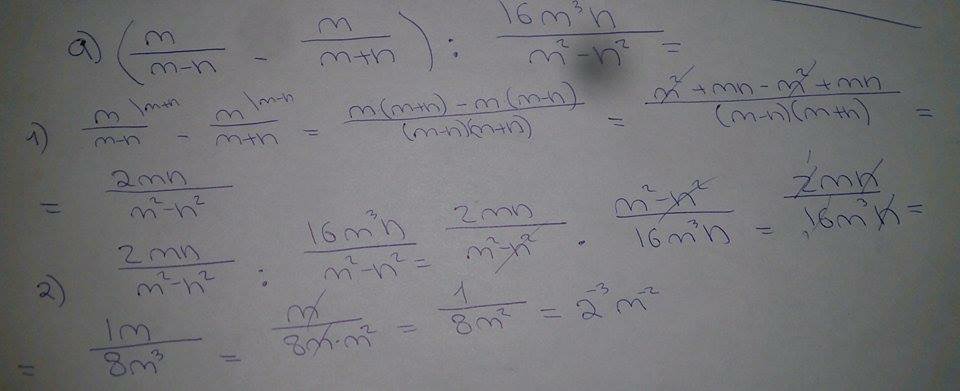 a) (m/(m-n) - m/(m+n)) : 16m³n/(m²-n²) =
1) m\m+n/(m-n) - m\m-n/(m+n) = (m(m+n) - m(m-n))/((m-n)(m+n)) = (m² + mn - m² + mn)/((m-n)(m+n)) =
= 2mn/(m²-n²)
2) 2mn/(m²-n²) : 16m³n/(m²-n²) = 2mn/(m²-n²) · (m²-n²)/(16m³n) = 2mn/(16m³n) =
= 1m/(8m³) = m/(8m·m²) = 1/(8m²) = 2⁻³m⁻²